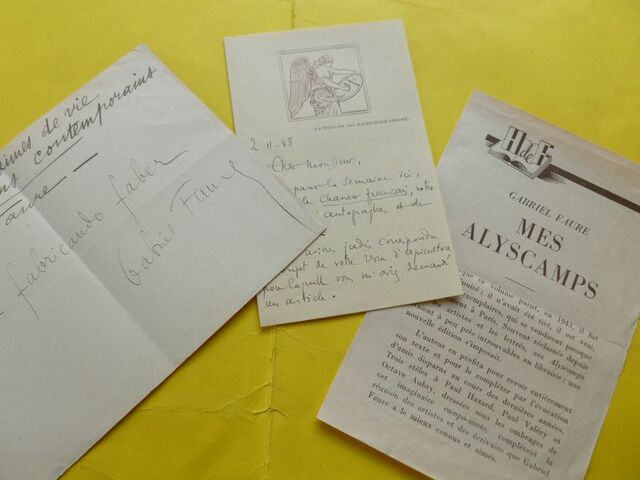 de vie
contemporains
Faure
fabricando faber
Gabriel Faure
2 . 11 - 48
Cher Monsieur,
la semaine ici,
le Chasseur français, votre
d'autographes et de
jadis correspondu
de votre d'apiculture
pour laquelle vous m'aviez demandé
un article.
H de F
GABRIEL FAURE
MES
ALYSCAMPS
que ce volume parut, en 1943, il fut
épuisé ; il n'avait été tiré, il est vrai
exemplaires, qui se vendirent presque
à Paris. Souvent réclamés depuis
artistes et les lettrés, ces Alyscamps
à peu près introuvables en librairie ; une
nouvelle édition s'imposait.
L'auteur en profita pour revoir entièrement
son texte et pour le compléter par l'évocation
d'amis disparus au cours des dernières années.
Trois stèles, à Paul Hazard, Paul Valéry et
Octave Aubry, dressées sous les ombrages de
l'imaginaire complètent la
réunion des artistes et des écrivains que Gabriel
Faure a le mieux connus et aimés.